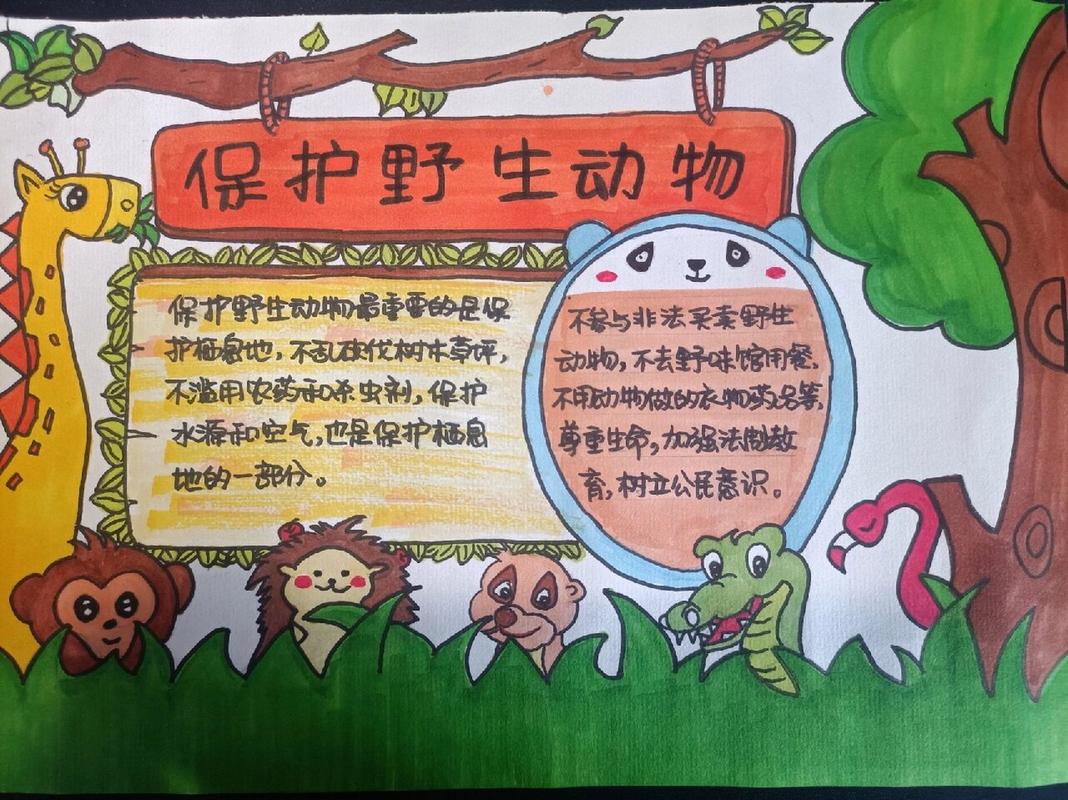 保护野生动物
保护野生动物最重要的是保
护栖息地，不乱砍伐树木草坪，
不滥用农药和杀虫剂，保护
水源和空气，也是保护栖息
地的一部分。
不参与非法买卖野生
动物，不去野味馆用餐，
不用动物做的衣物药品等，
尊重生命，加强法制教
育，树立公民意识。